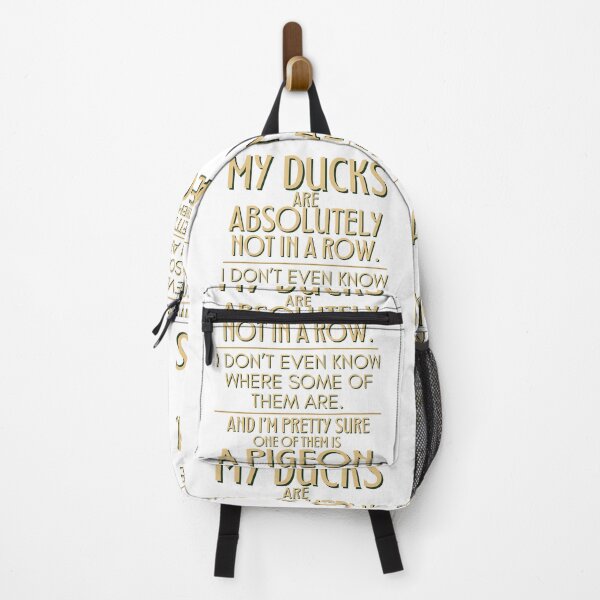 MY DUCKS
ARE
ABSOLUTELY
NOT IN A ROW.
I DON'T EVEN KNOW
MY DUCKS
ARE
ABSOLUTELY
NOT IN A ROW.
I DON'T EVEN KNOW
WHERE SOME OF
THEM ARE.
AND I'M PRETTY SURE
ONE OF THEM IS
A PIGEON
MY DUCKS
ARE